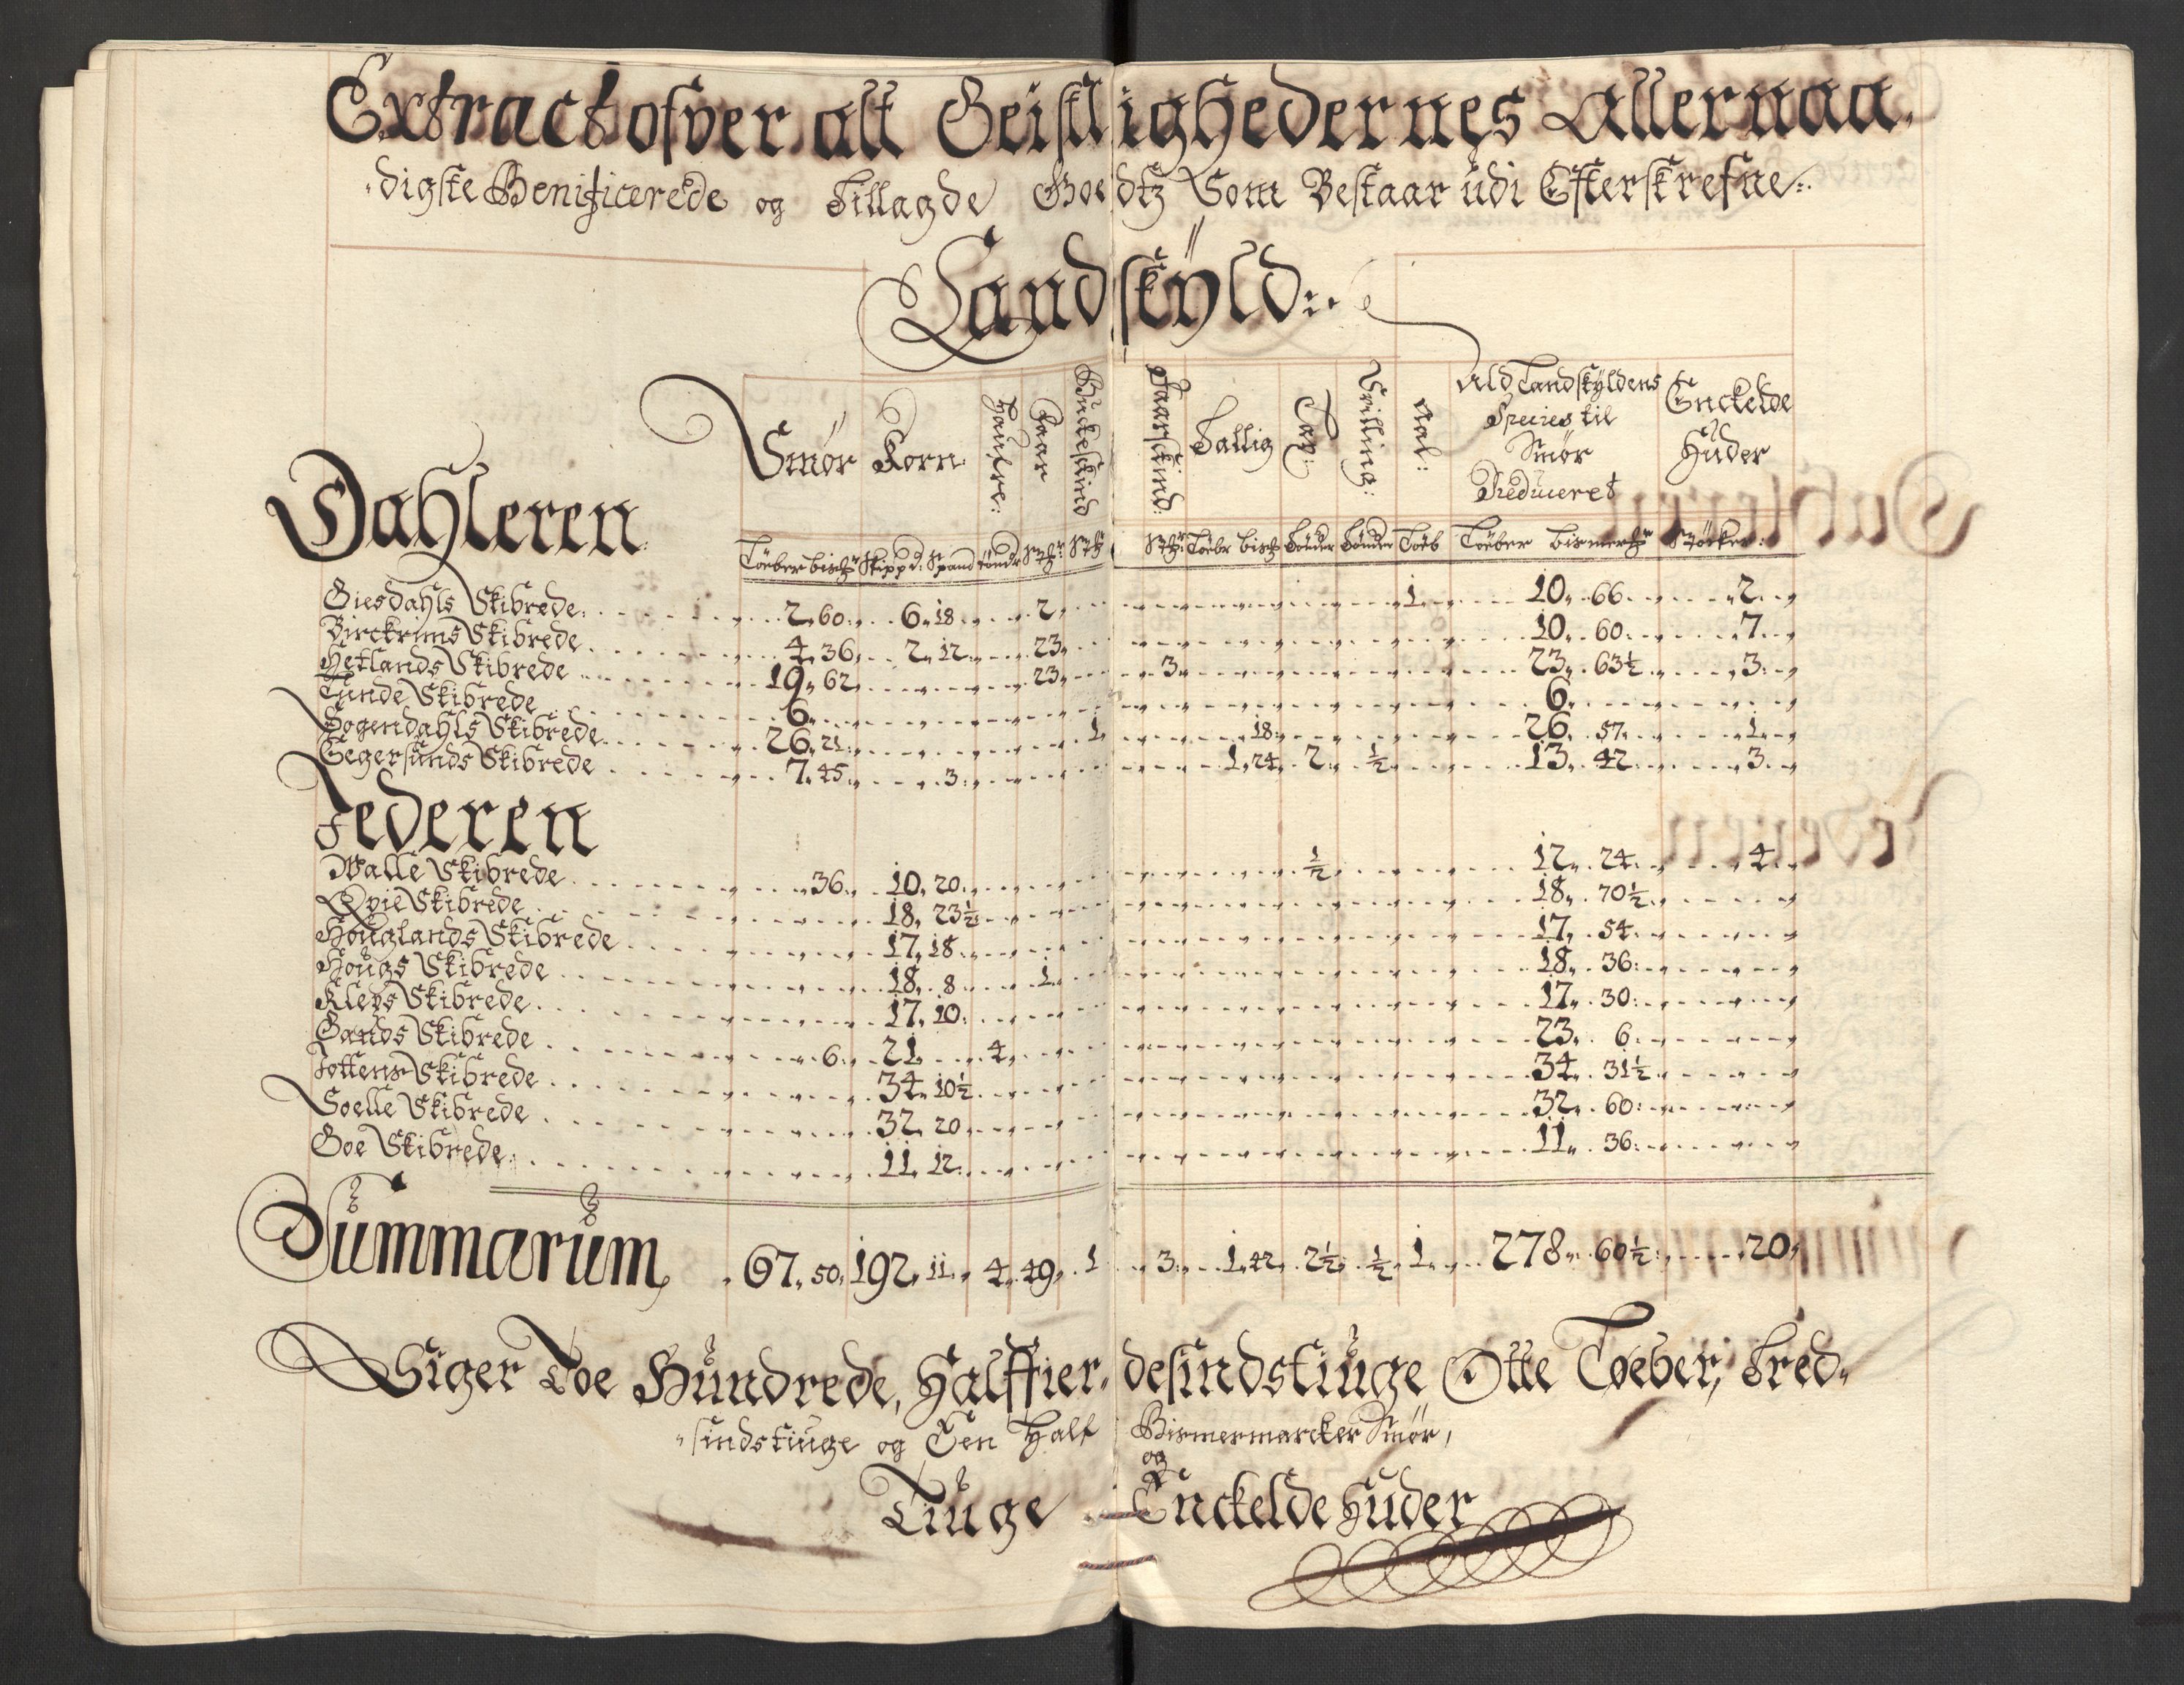 Extract ofver alt Geistlighedernes Allernaa,
digste Benificerede og Tillagde Goedtz Som Bestaar udi Efterskrefne:
Landskÿld:
Smør Korn Haufre: Faar Buckeskind Faarskind: Tallig Tar: Srilling: Aal: Ald Landskÿldens Species til Smør Reduceret Enckelde Huder
Dahleren
Løeber bischr Skippd: Spand tønder Stchr Stch Stchr: Løebr bisch tønder tønder Løeb Løeber bismerchr Støcker:
Giesdahls Skibrede: 2, 60: 6, 18 2, 1 10, 66 2
Birckrims Skibrede 4, 36, 2, 12 23, 10, 60: 7
Hetlands Skibrede 19, 62, 23, 3, 23, 63½ 3:
Lunde Skibrede 6, 6,
Sogendahls Skibrede 26, 21: 1, 18: 26, 57, 1,
Eegersunds Skibrede 7, 45 3: 1, 24, 2, ½ 13, 42 3
Jederen
Walle Skibrede 36, 10, 20 ½ 12, 24: 4
Qvie Skibrede 18, 23½ 18, 70½
Houglands Skibrede 17, 18 17, 54:
Hougs Skibrede 18, 8 1 18, 36:
Kleps Skibrede 17, 10: 17, 30:
Gands Skibrede 6, 21, 4, 23, 6:
Jottens Skibrede 34, 10½ 34, 31½
Soelle Skibrede 32, 20 32, 60:
Goe Skibrede 11, 12: 11, 36:
Summarum, 67, 50, 192, 11, 4, 49, 1 3, 1, 42, 2½, ½, 1, 278, 60½: 20,
Siger Toe Hundrede, Halffierdesindstiuge Otte Løeber, Tred,
sindstiuge og Een Half Bismermarcker Smør,
og
Tiuge Enckelde Huder